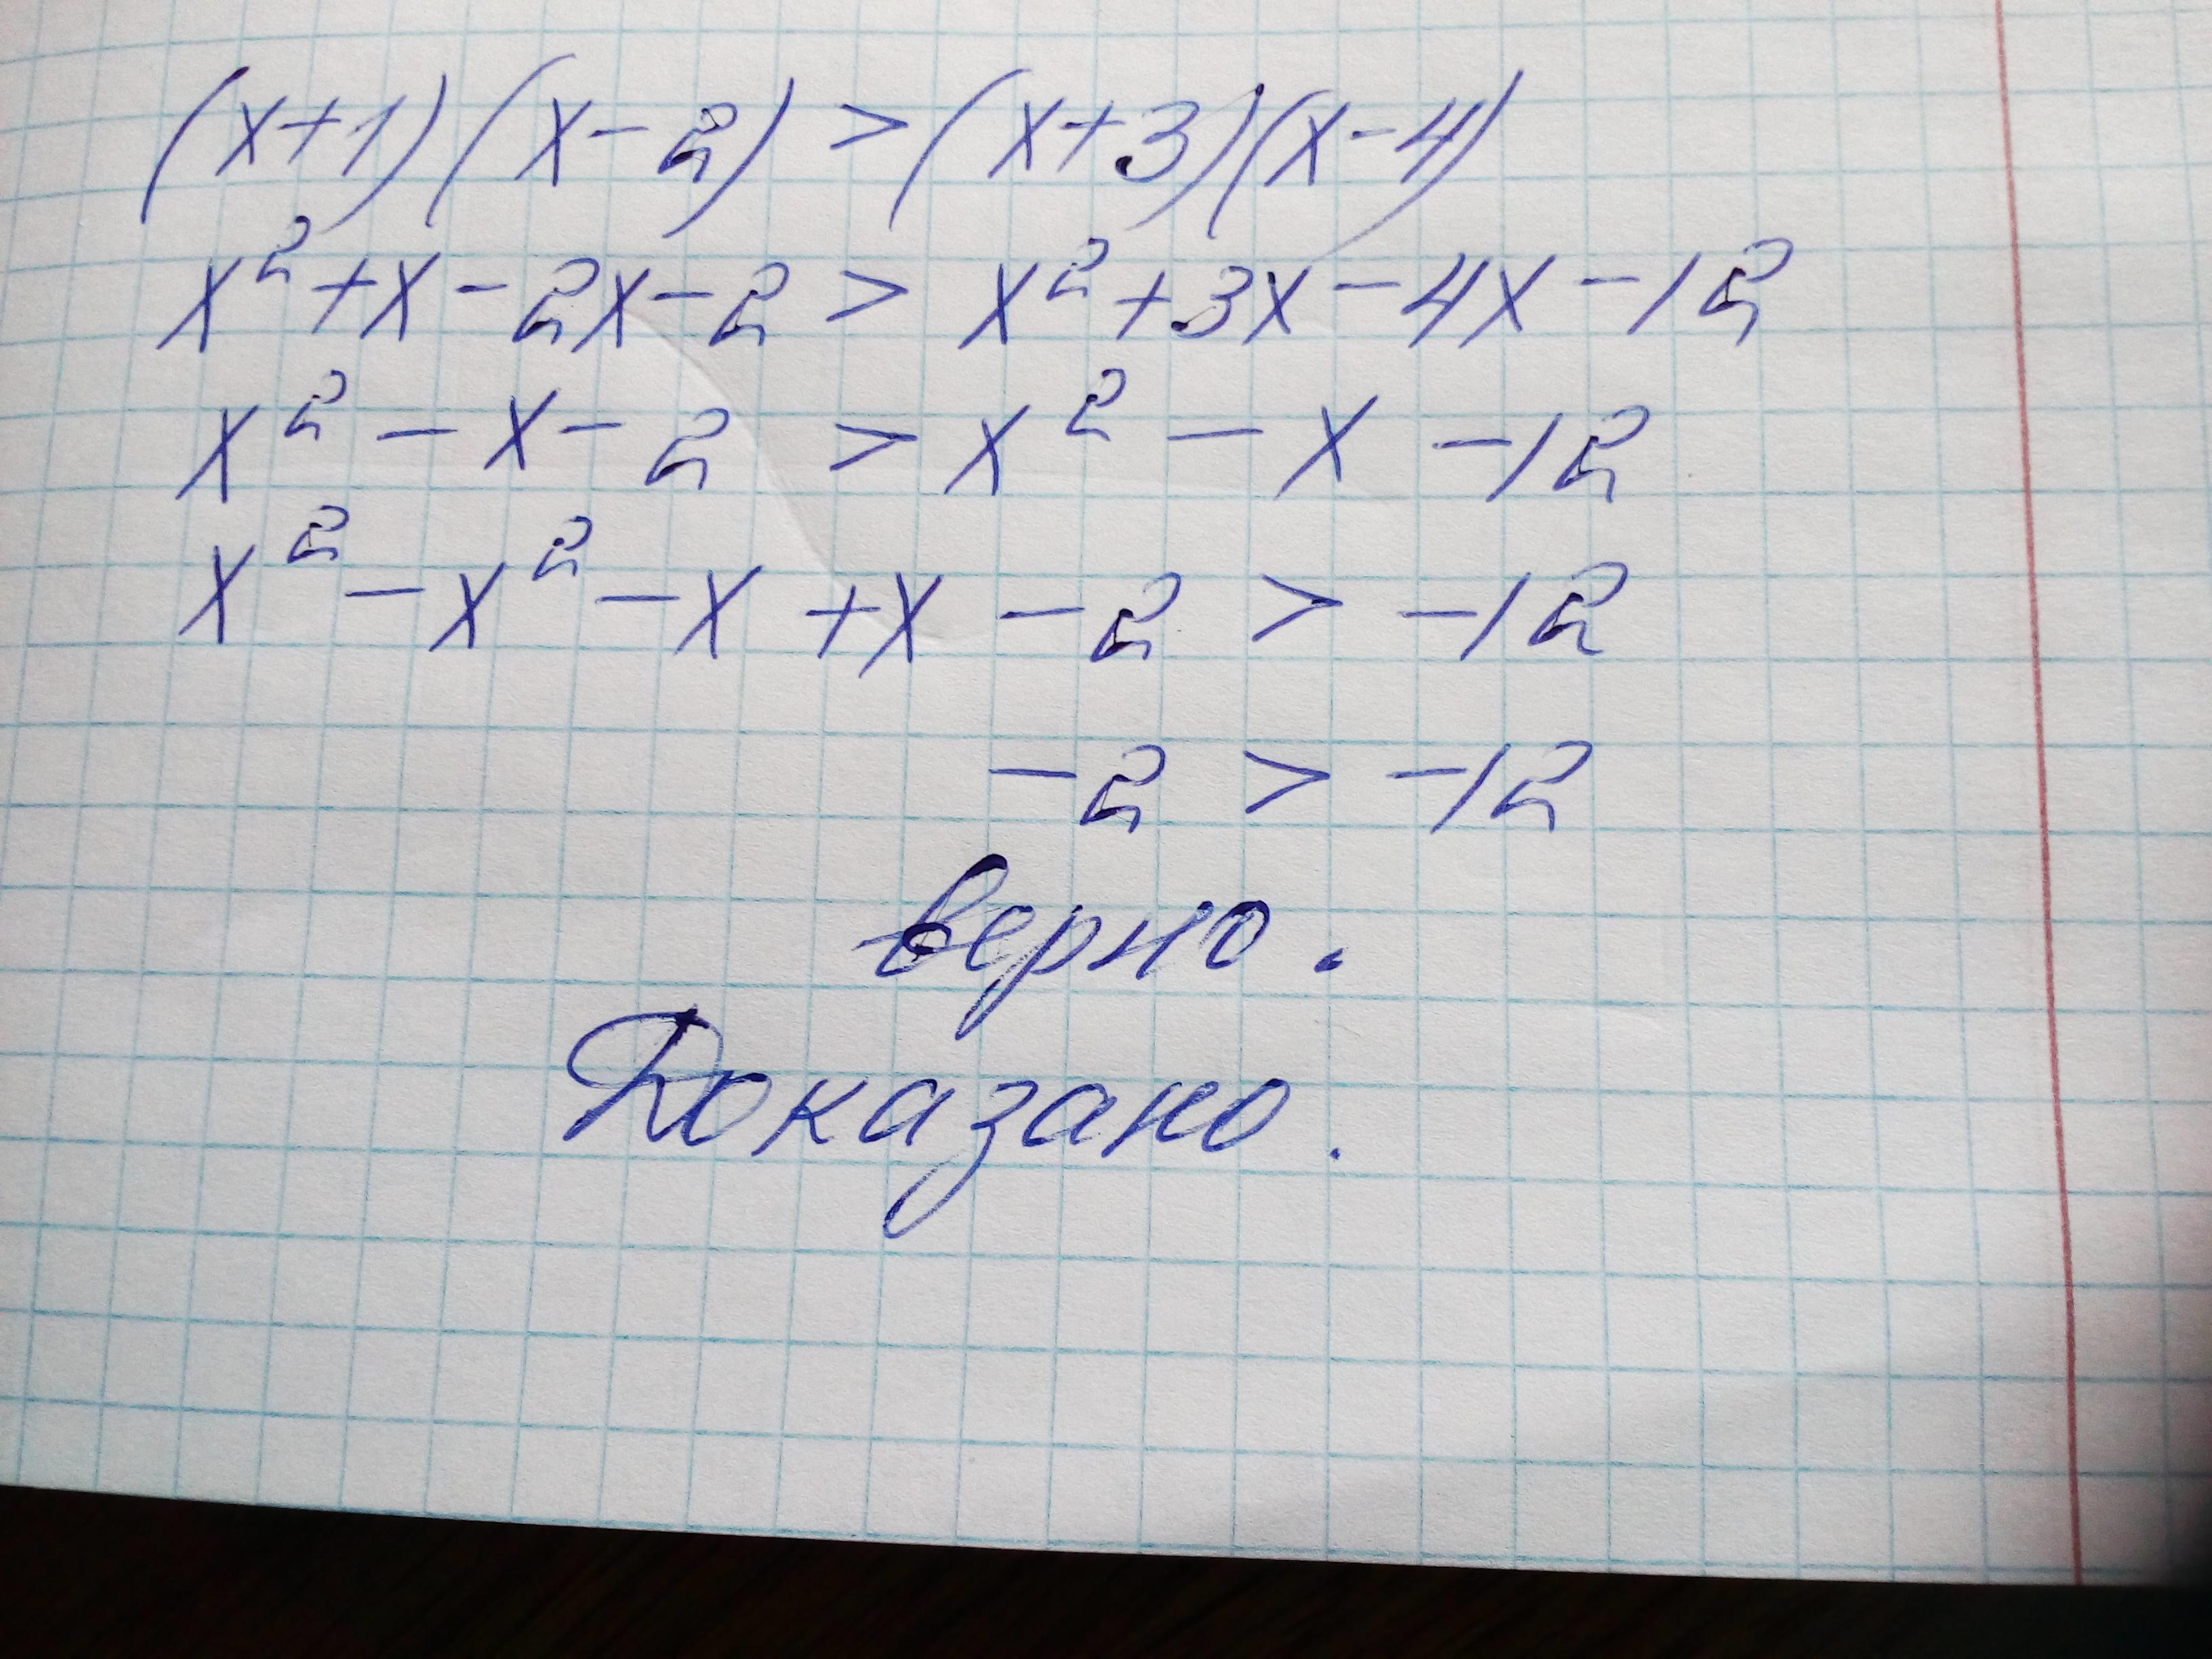 (x+1)(x-2)>(x+3)(x-4)
x²+x-2x-2> x²+3x-4x-12
x²-x-2 > x²-x-12
x²-x²-x+x-2 > -12
-2 > -12
верно.
Доказано.